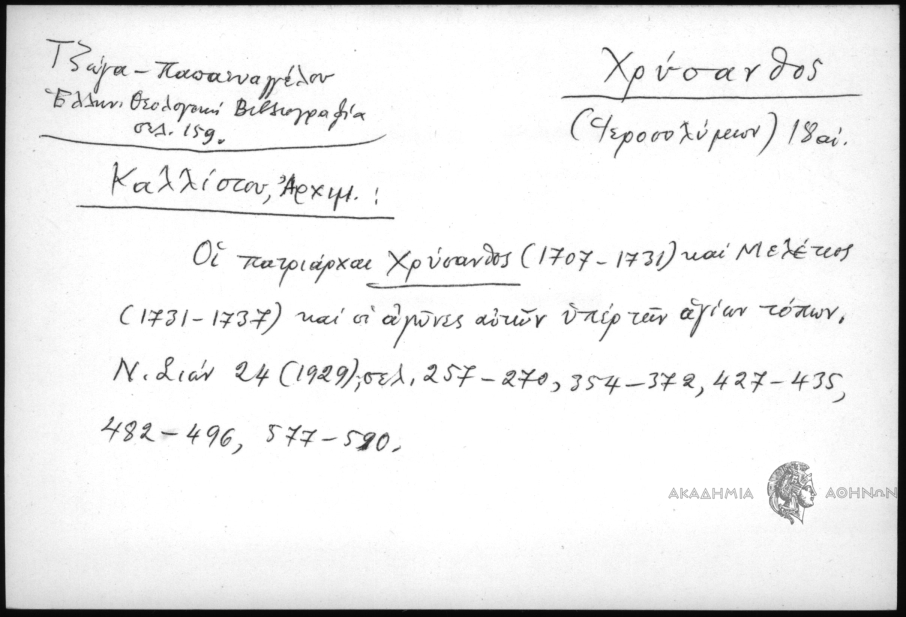 Τζώγα – Παπαευαγγέλου
Ἑλλην. Θεολογική Βιβλιογραφία
σελ. 159.
Χρύσανθος
(Ἱεροσολύμων) 18 αἰ.
Καλλίστου, Ἀρχιμ. :
Οἱ πατριάρχαι Χρύσανθος (1707–1731) καί Μελέτιος
(1731–1737) καί οἱ ἀγῶνες αὐτῶν ὑπέρ τῶν ἁγίων τόπων.
Ν. Σιών 24 (1929), σελ. 257–270, 354–372, 427–435,
482–496, 577–590.
ΑΚΑΔΗΜΙΑ ΑΘΗΝΩΝ